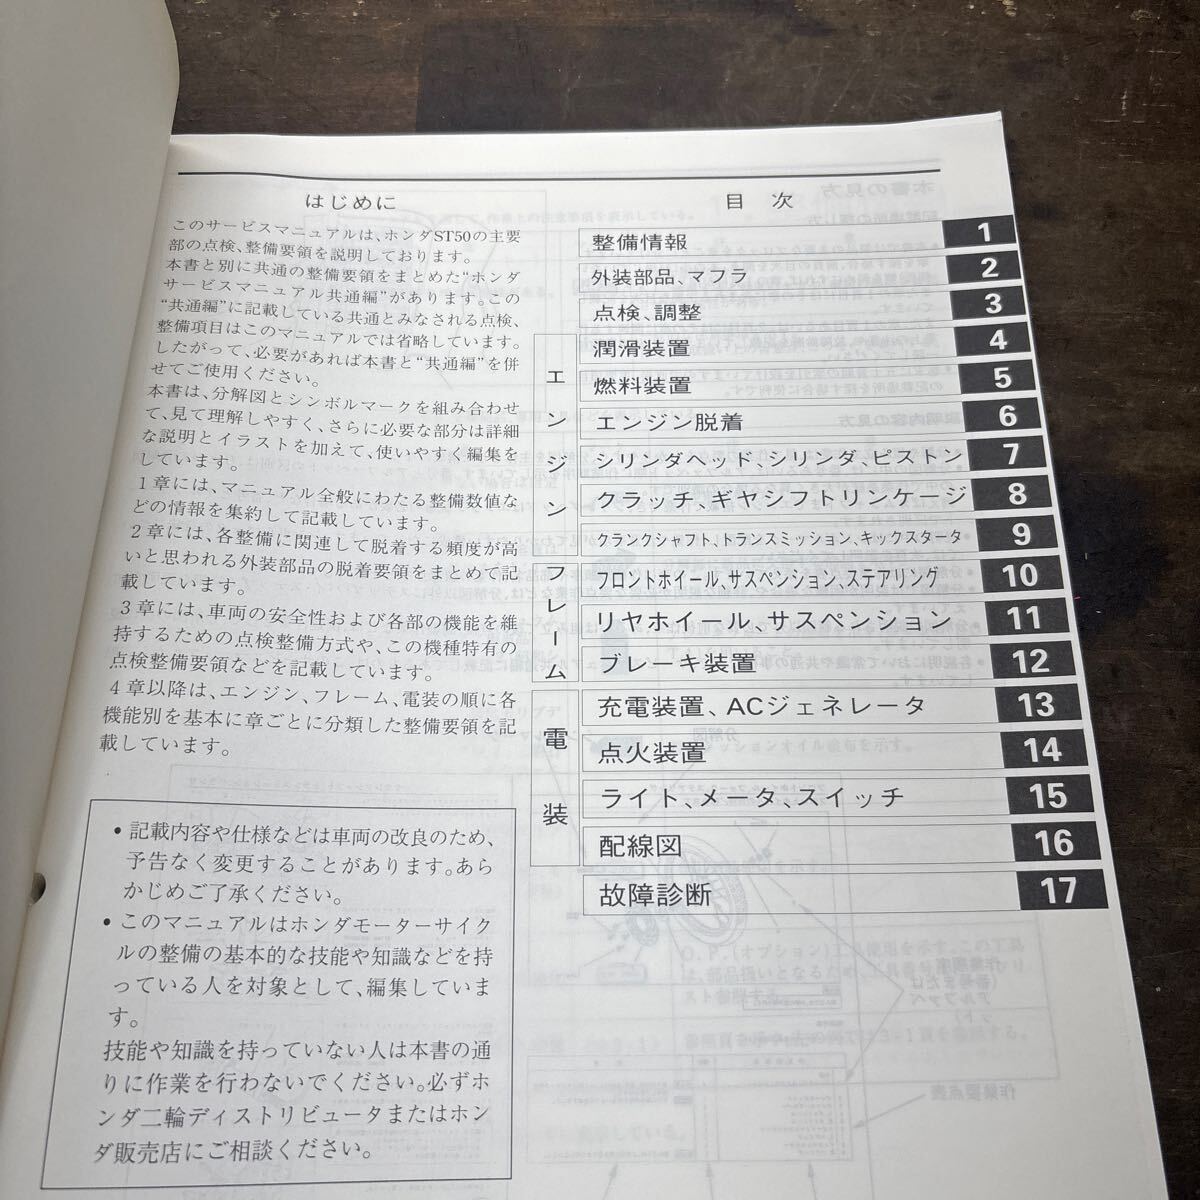 はじめに
このサービスマニュアルは、ホンダST50の主要
部の点検、整備要領を説明しております。
本書と別に共通の整備要領をまとめた“ホンダ
サービスマニュアル共通編”があります。この
“共通編”に記載している共通とみなされる点検、
整備項目はこのマニュアルでは省略しています。
したがって、必要があれば本書と“共通編”を併
せてご使用ください。
本書は、分解図とシンボルマークを組み合わせ
て、見て理解しやすく、さらに必要な部分は詳細
な説明とイラストを加えて、使いやすく編集を
しています。
1章には、マニュアル全般にわたる整備数値な
どの情報を集約して記載しています。
2章には、各整備に関連して脱着する頻度が高
いと思われる外装部品の脱着要領をまとめて記
載しています。
3章には、車両の安全性および各部の機能を維
持するための点検整備方式や、この機種特有の
点検整備要領などを記載しています。
4章以降は、エンジン、フレーム、電装の順に各
機能別を基本に章ごとに分類した整備要領を記
載しています。
• 記載内容や仕様などは車両の改良のため、
予告なく変更することがあります。あら
かじめご了承ください。
• このマニュアルはホンダモーターサイク
ルの整備の基本的な技能や知識などを持
っている人を対象として、編集していま
す。
技能や知識を持っていない人は本書の通
りに作業を行わないでください。必ずホ
ンダ二輪ディストリビュータまたはホン
ダ販売店にご相談ください。
目 次
整備情報 1
外装部品、マフラ 2
点検、調整 3
エンジン
潤滑装置 4
燃料装置 5
エンジン脱着 6
シリンダヘッド、シリンダ、ピストン 7
クラッチ、ギヤシフトリンケージ 8
クランクシャフト、トランスミッション、キックスタータ 9
フレーム
フロントホイール、サスペンション、ステアリング 10
リヤホイール、サスペンション 11
ブレーキ装置 12
電装
充電装置、ACジェネレータ 13
点火装置 14
ライト、メータ、スイッチ 15
配線図 16
故障診断 17